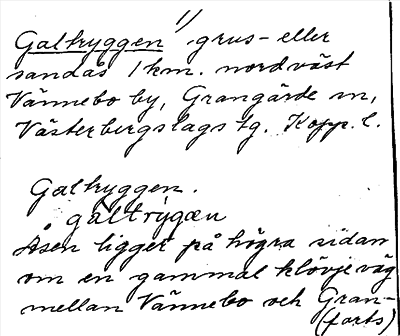 1)
Galtryggen grus- eller
sandås 1 km. nordväst
Vännebo by, Grangärde sn,
Västerbergslags tg. Kopp. l.
Galtryggen.
gàltrỳgæn
Åsen ligger på högra sidan
om en gammal klövjeväg
mellan Vännebo och Gran-
(forts)